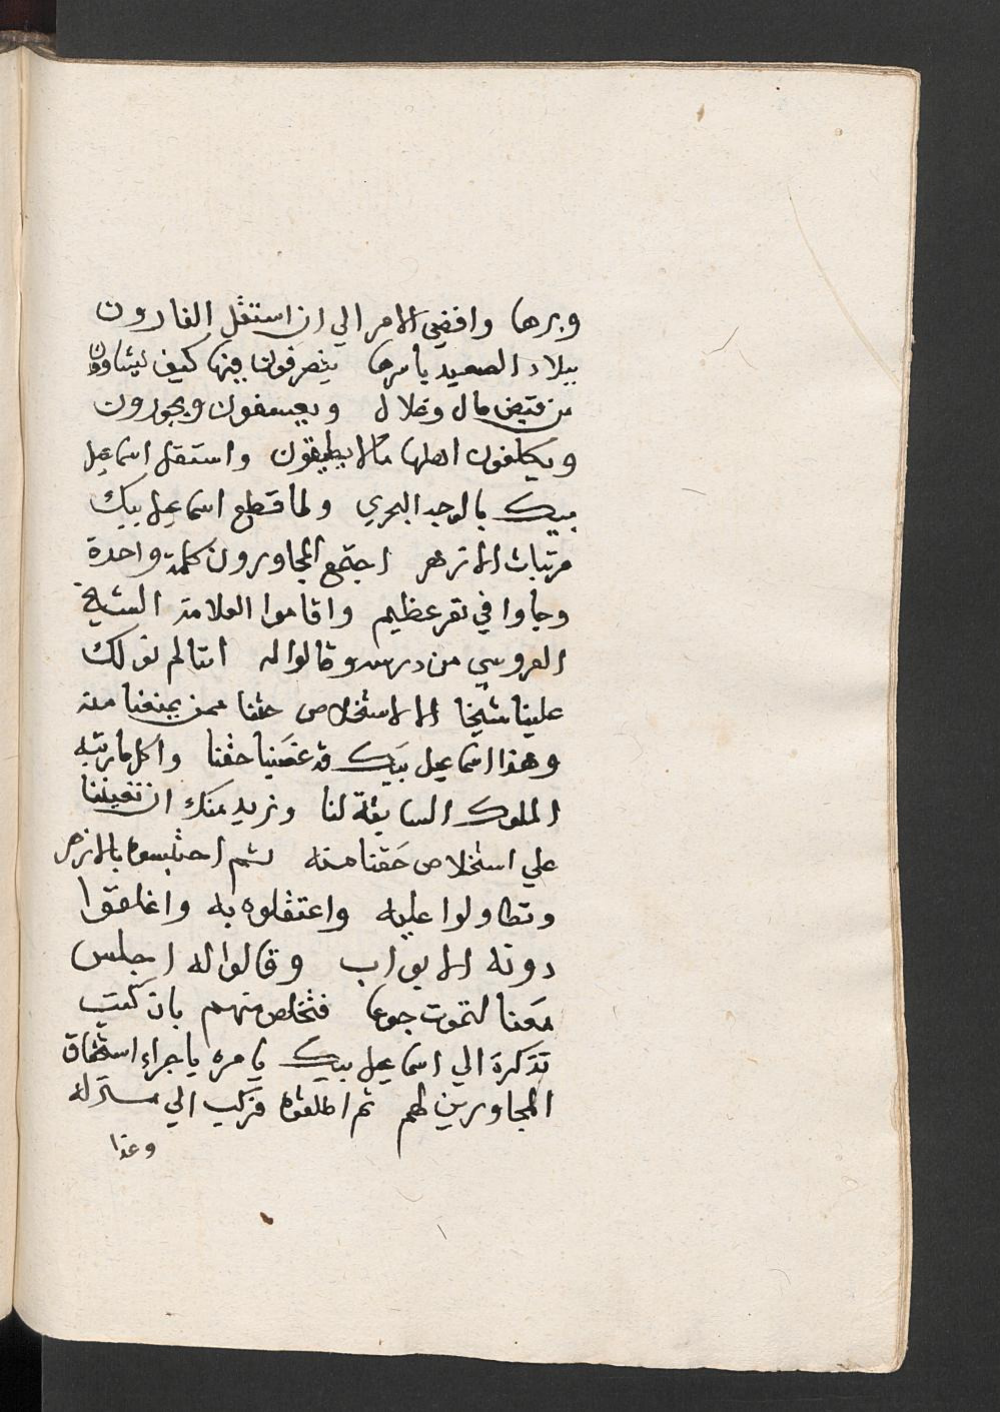 وبرها وافضي الامر الي ان استقل الفارون
ببلاد الصعيد يامرها يتصرفون فيها كيف يشاوون
من قبض مال وغلال ويعسفون ويجورون
ويكلفون اهلها مالا يطيقون واستقل اسماعيل
بيك بالوجه البحري ولما قطع اسماعيل بيك
مرتبات الازهر اجتمع المجاورون كلمة واحدة
وجاوا في نفر عظيم واقاموا العلامة الشيخ
العروسي من درسه وقالوا له اننا لم نولك
علينا شيخا الا لاستخلاص حقنا ممن يمنعنا منه
وهذا اسماعيل بيك قد غصبنا حقنا واكل ما رتبه
الملوك السابقة لنا ونريد منك ان تعيننا
علي استخلاص حقنا منه ثم احتبسوه بالازهر
وتطاولوا عليه واعتقلوه به واغلقوا
دونه الابواب وقالوا له اجلس
معنا لتموت جوعا فتخلص منهم بان كتب
تذكرة الي اسماعيل بيك يامره باجراء استحقاق
المجاورين لهم ثم اطلقوه فركب الي منزله
وغدا